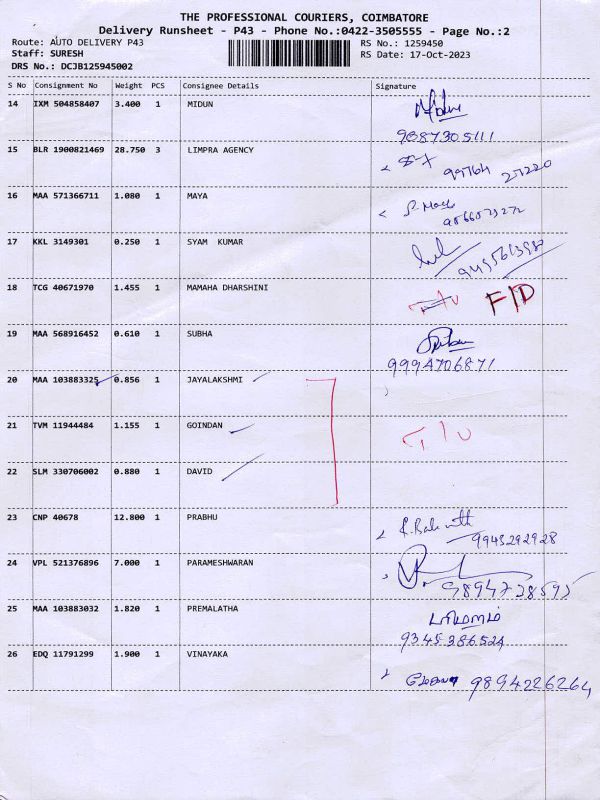 THE PROFESSIONAL COURIERS, COIMBATORE
Delivery Runsheet - P43 - Phone No.:0422-3505555 - Page No.:2
Route: AUTO DELIVERY P43 RS No.: 1259450
Staff: SURESH RS Date: 17-Oct-2023
DRS No.: DCJB125945002
S No Consignment No Weight PCS Consignee Details Signature
14 IXM 504858407 3.400 1 MIDUN
15 BLR 1900821469 28.750 3 LIMPRA AGENCY
16 MAA 571366711 1.080 1 MAYA
17 KKL 3149301 0.250 1 SYAM KUMAR
18 TCG 40671970 1.455 1 MAMAHA DHARSHINI F/D
19 MAA 568916452 0.610 1 SUBHA
9994706871
20 MAA 103883325 0.856 1 JAYALAKSHMI
21 TVM 11944484 1.155 1 GOINDAN
22 SLM 330706002 0.880 1 DAVID
23 CNP 40678 12.800 1 PRABHU
9943292928
24 VPL 521376896 7.000 1 PARAMESHWARAN
25 MAA 103883032 1.820 1 PREMALATHA
9345386524
26 EDQ 11791299 1.900 1 VINAYAKA
9894226264